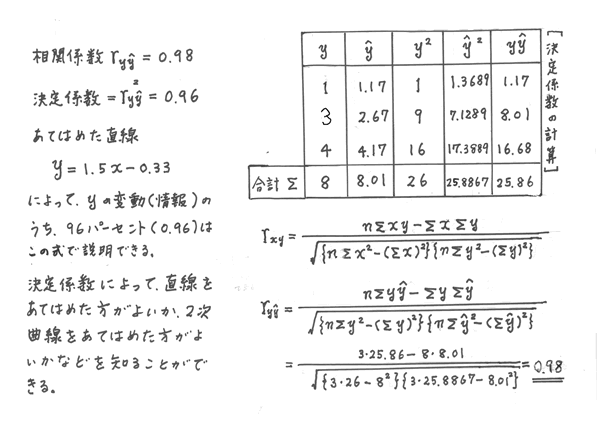 相関係数 r_yŷ = 0.98
決定係数 = r²_yŷ = 0.96
あてはめた直線
y = 1.5x − 0.33
によって、yの変動(情報)の
うち、96パーセント(0.96)は
この式で説明できる。
決定係数によって、直線を
あてはめた方がよいか、2次
曲線をあてはめた方がよ
いかなどを知ることがで
きる。
[決定係数の計算]
y ŷ y² ŷ² yŷ
1 1.17 1 1.3689 1.17
3 2.67 9 7.1289 8.01
4 4.17 16 17.3889 16.68
合計 Σ 8 8.01 26 25.8867 25.86
r_xy = (nΣxy − Σx Σy) / √{nΣx² − (Σx)²}{nΣy² − (Σy)²}
r_yŷ = (nΣyŷ − Σy Σŷ) / √{nΣy² − (Σy)²}{nΣŷ² − (Σŷ)²}
= (3·25.86 − 8·8.01) / √{3·26 − 8²}{3·25.8867 − 8.01²} = 0.98